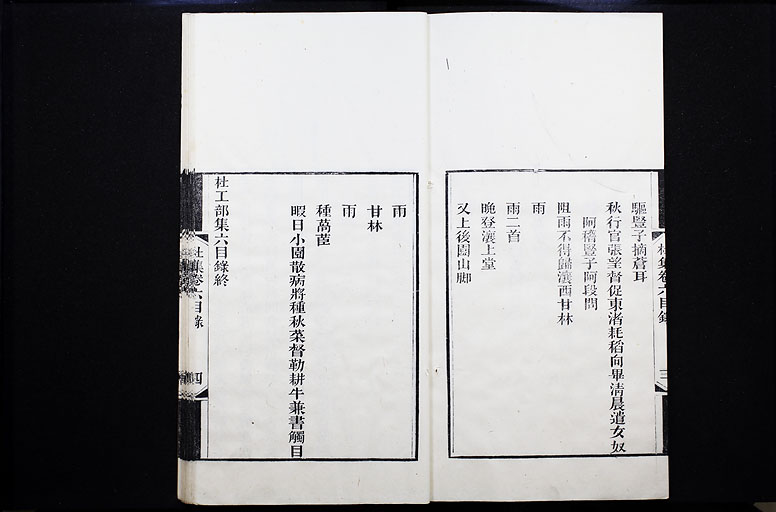 驅豎子摘蒼耳
秋行官張望督促東渚耗稻向畢清晨遣女奴
阿稽豎子阿段問
阻雨不得歸瀼西甘林
雨
雨二首
晚登瀼上堂
又上後園山脚
杜集卷六目錄
三
雨
甘林
雨
種萵苣
暇日小園散病將種秋菜督勒耕牛兼書觸目
杜工部集六目錄終
杜集卷六目錄
四